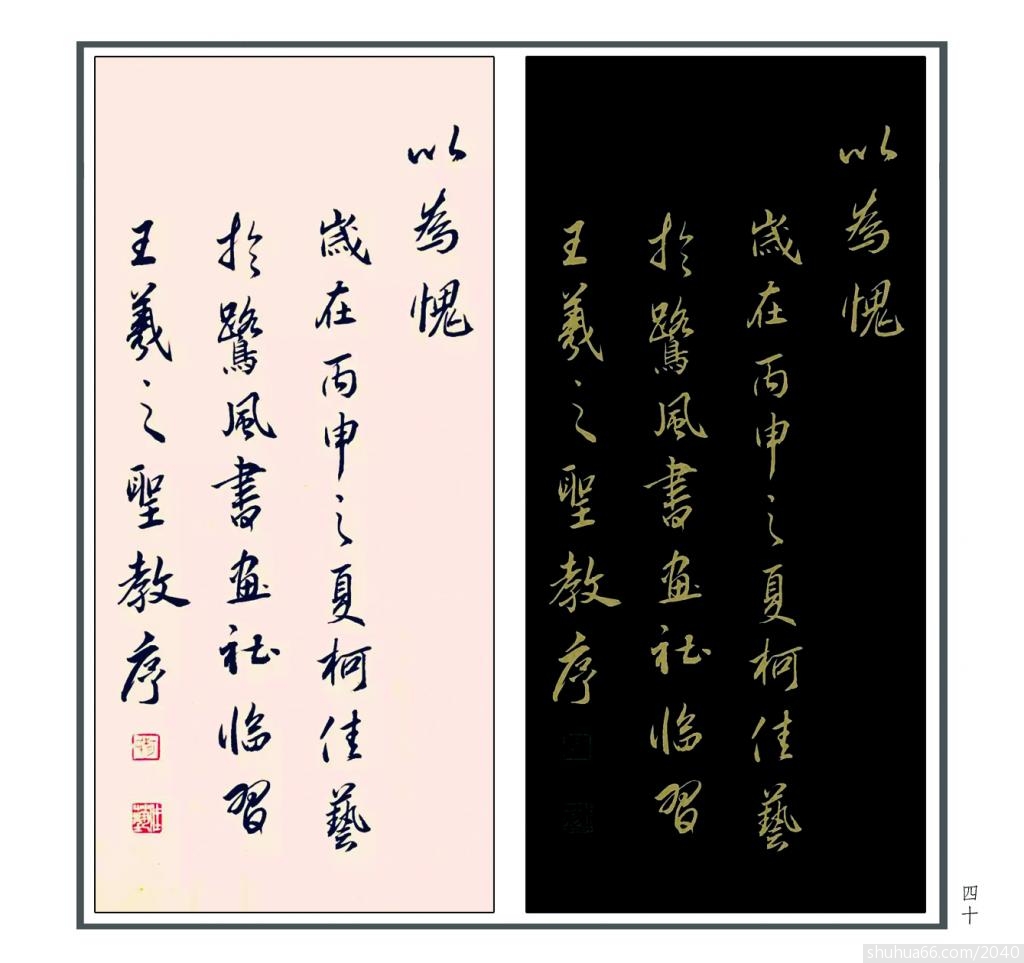 以為愧
歲在丙申之夏柯佳藝
於鷺風書画社临習
王羲之聖教序
以為愧
歲在丙申之夏柯佳藝
於鷺風書画社临習
王羲之聖教序
四十
shuhua66.com/2040